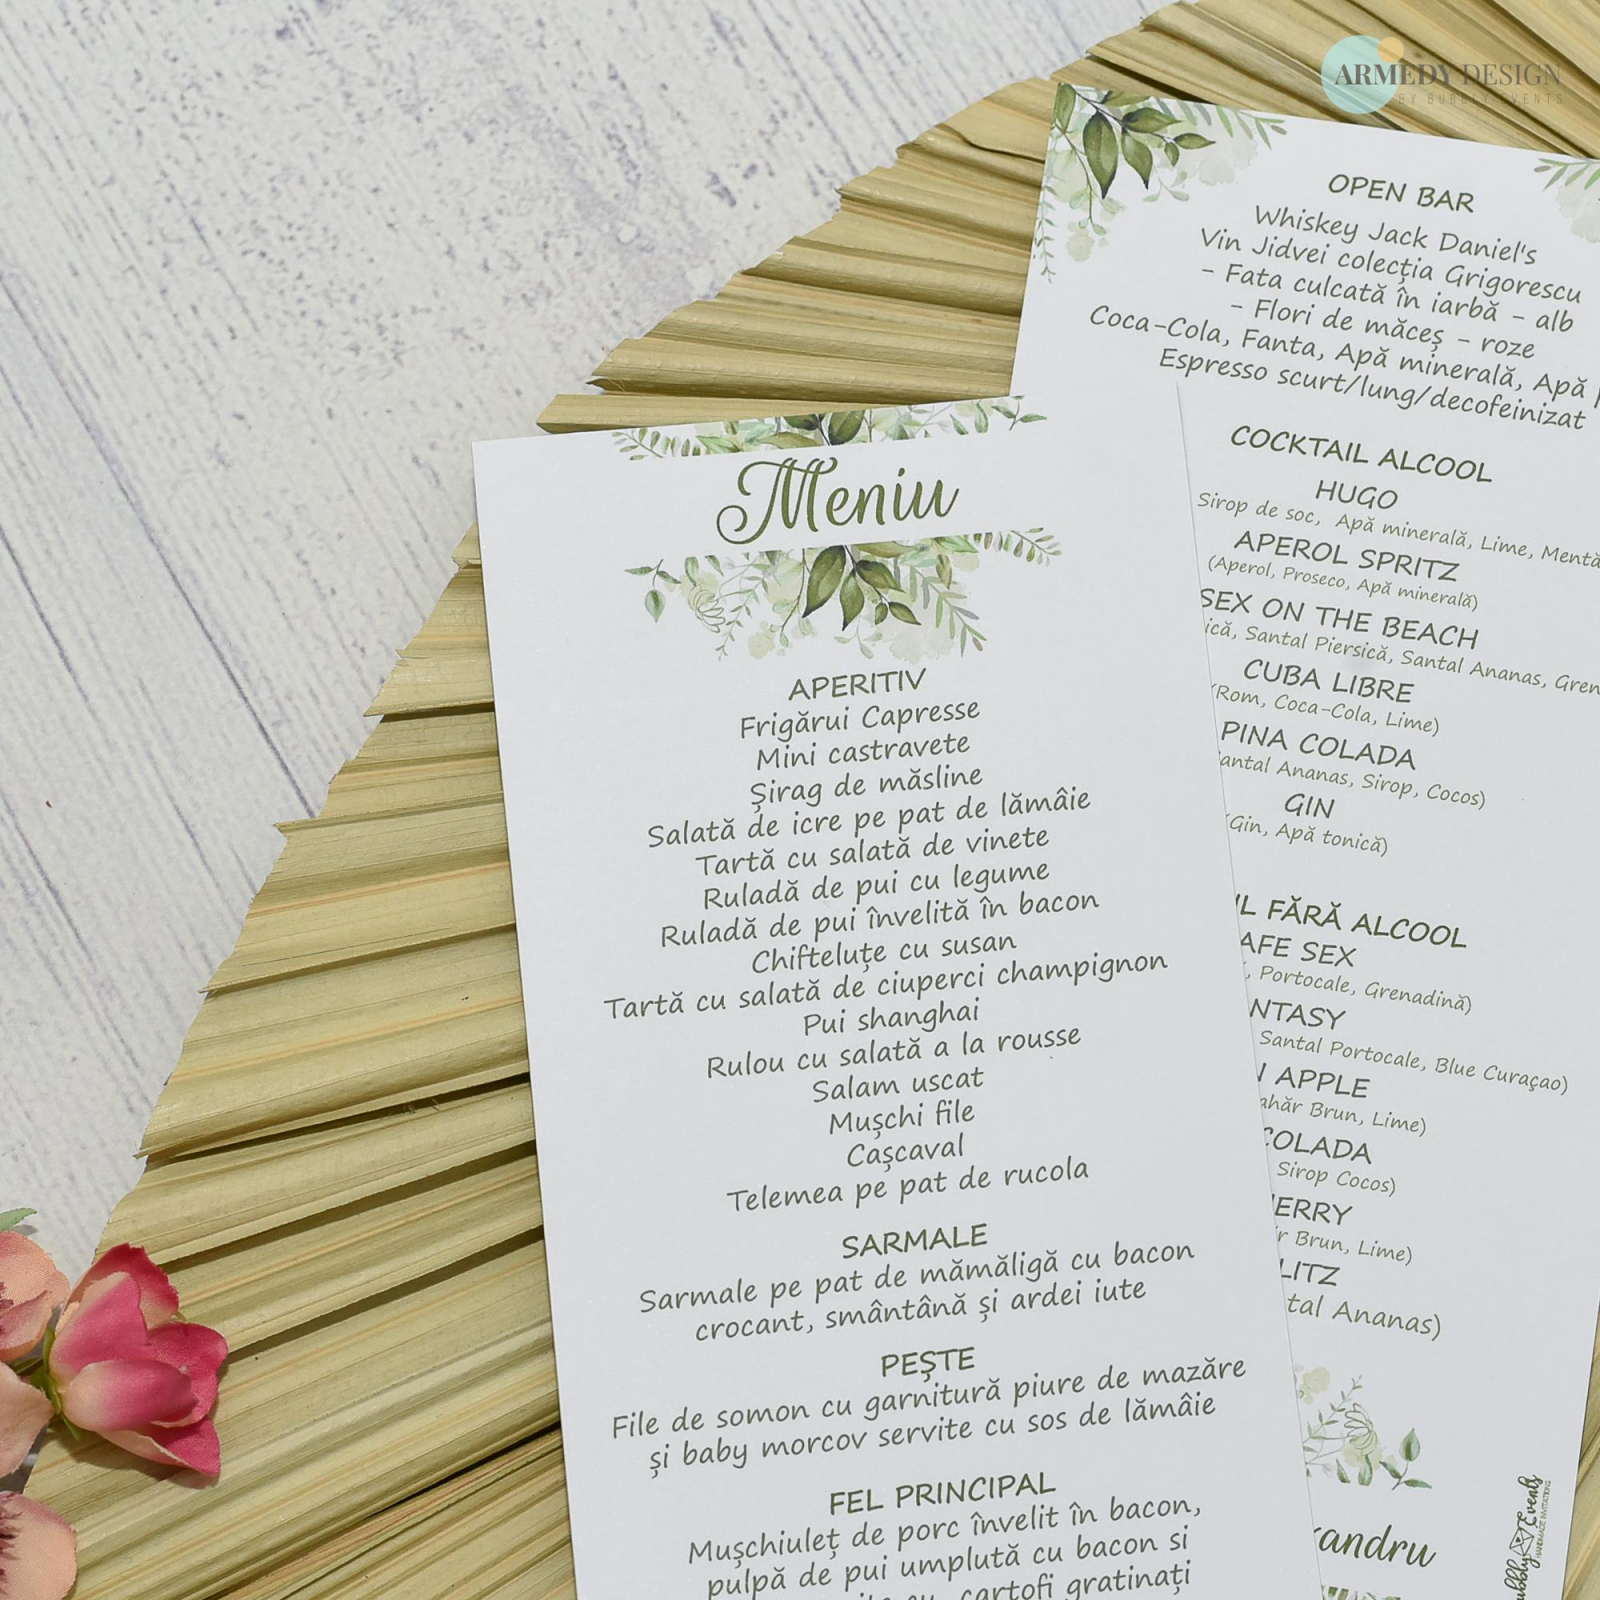 ARMEDY DESIGN
BY BUBBLY EVENTS
OPEN BAR
Whiskey Jack Daniel's
Vin Jidvei colecția Grigorescu
- Fata culcată în iarbă - alb
- Flori de măceș - roze
Coca-Cola, Fanta, Apă minerală, Apă
Espresso scurt/lung/decofeinizat
COCKTAIL ALCOOL
HUGO
Sirop de soc, Apă minerală, Lime, Mentă
APEROL SPRITZ
(Aperol, Proseco, Apă minerală)
SEX ON THE BEACH
Santal Piersică, Santal Ananas,
CUBA LIBRE
(Rom, Coca-Cola, Lime)
PINA COLADA
Ananas, Sirop, Cocos)
GIN
(Gin, Apă tonică)
FĂRĂ ALCOOL
SEX
Portocale, Grenadină)
Santal Portocale, Blue Curaçao)
APPLE
Brun, Lime)
COLADA
Sirop Cocos)
Brun, Lime)
Ananas)
Bubbly Events
HANDMADE INVITATIONS
Meniu
APERITIV
Frigărui Capresse
Mini castravete
Șirag de măsline
Salată de icre pe pat de lămâie
Tartă cu salată de vinete
Ruladă de pui cu legume
Ruladă de pui învelită în bacon
Chifteluțe cu susan
Tartă cu salată de ciuperci champignon
Pui shanghai
Rulou cu salată a la rousse
Salam uscat
Mușchi file
Cașcaval
Telemea pe pat de rucola
SARMALE
Sarmale pe pat de mămăligă cu bacon
crocant, smântână și ardei iute
PEȘTE
File de somon cu garnitură piure de mazăre
și baby morcov servite cu sos de lămâie
FEL PRINCIPAL
Mușchiuleț de porc învelit în bacon,
pulpă de pui umplută cu bacon si
cartofi gratinați